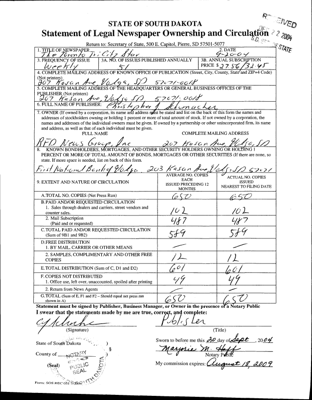 STATE OF SOUTH DAKOTA
Statement of Legal Newspaper Ownership and Circulation
Return to: Secretary of State, 500 E. Capitol, Pierre, SD 57501-5077
1. TITLE OF NEWSPAPER
2. DATE
9-2004
3. FREQUENCY OF ISSUE
Weekly
3A. NO. OF ISSUES PUBLISHED ANNUALLY
51
3B. ANNUAL SUBSCRIPTION
PRICE $
4. COMPLETE MAILING ADDRESS OF KNOWN OFFICE OF PUBLICATION (Street, City, County, State and ZIP+4 Code)
(Not printers)
5. COMPLETE MAILING ADDRESS OF THE HEADQUARTERS OR GENERAL BUSINESS OFFICES OF THE
PUBLISHER (Not printers)
6. FULL NAME OF PUBLISHER:
7. OWNER (If owned by a corporation, its name and address must be stated and list on the back of this form the names and
addresses of stockholders owning or holding 1 percent or more of total amount of stock. If not owned by a corporation, the
names and addresses of the individual owners must be given. If owned by a partnership or other unincorporated firm, its name
and address, as well as that of each individual must be given.
FULL NAME
COMPLETE MAILING ADDRESS
RFD News Group, Inc
8. KNOWN BONDHOLDERS, MORTGAGES, AND OTHER SECURITY HOLDERS OWNING OR HOLDING 1
PERCENT OR MORE OF TOTAL AMOUNT OF BONDS, MORTGAGES OR OTHER SECURITIES (If there are none, so
state. If more space is needed, list on back of this form.
9. EXTENT AND NATURE OF CIRCULATION
AVERAGE NO. COPIES EACH ISSUED PRECEDING 12 MONTHS
ACTUAL NO. COPIES ISSUED NEAREST TO FILING DATE
A. TOTAL NO. COPIES (Net Press Run) 650 650
B. PAID AND/OR REQUESTED CIRCULATION
1. Sales through dealers and carriers, street vendors and
counter sales. 102 102
2. Mail Subscription
(Paid and or requested) 487 487
C. TOTAL PAID AND/OR REQUESTED CIRCULATION
(Sum of 9B1 and 9B2) 589 589
D. FREE DISTRIBUTION
1. BY MAIL, CARRIER OR OTHER MEANS
2. SAMPLES, COMPLIMENTARY AND OTHER FREE
COPIES 12 12
E. TOTAL DISTRIBUTION (Sum of C, D1 and D2) 601 601
F. COPIES NOT DISTRIBUTED
1. Office use, left over, unaccounted, spoiled after printing 49 49
2. Return from News Agents
G. TOTAL (Sum of E, F1 and F2 - Should equal net press run
shown in A) 650 650
Statement must be signed by Publisher, Business Manager, or Owner in the presence of a Notary Public
I swear that the statements made by me are true, correct, and complete:
Publisher
(Signature) (Title)
State of South Dakota
County of
(Seal)
Sworn to before me this 20 day of Sept 2004
Marjorie M.
Notary Public
My commission expires: August 18, 2009